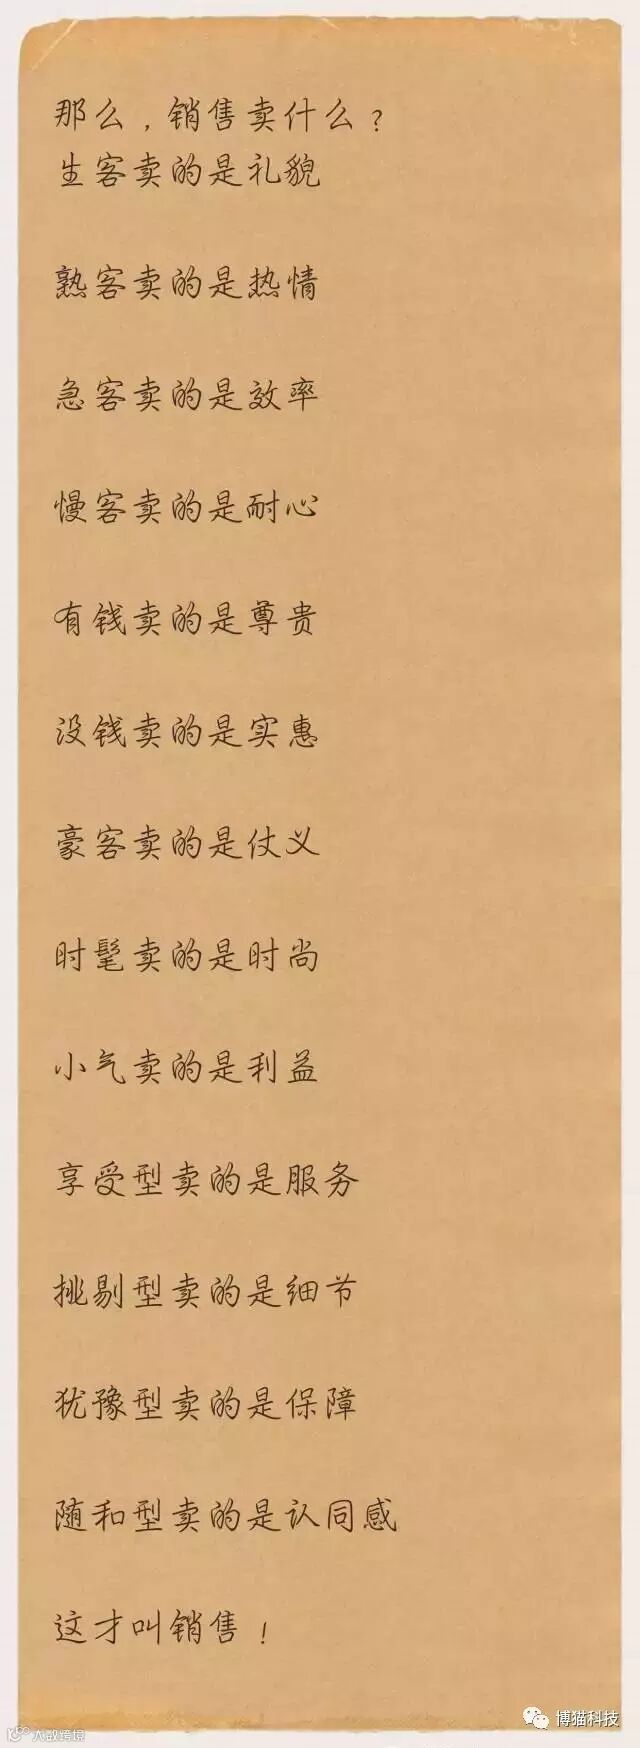 那么，销售卖什么？
生客卖的是礼貌
熟客卖的是热情
急客卖的是效率
慢客卖的是耐心
有钱卖的是尊贵
没钱卖的是实惠
豪客卖的是仗义
时髦卖的是时尚
小气卖的是利益
享受型卖的是服务
挑剔型卖的是细节
犹豫型卖的是保障
随和型卖的是认同感
这才叫销售！
博猫科技
大数跨境